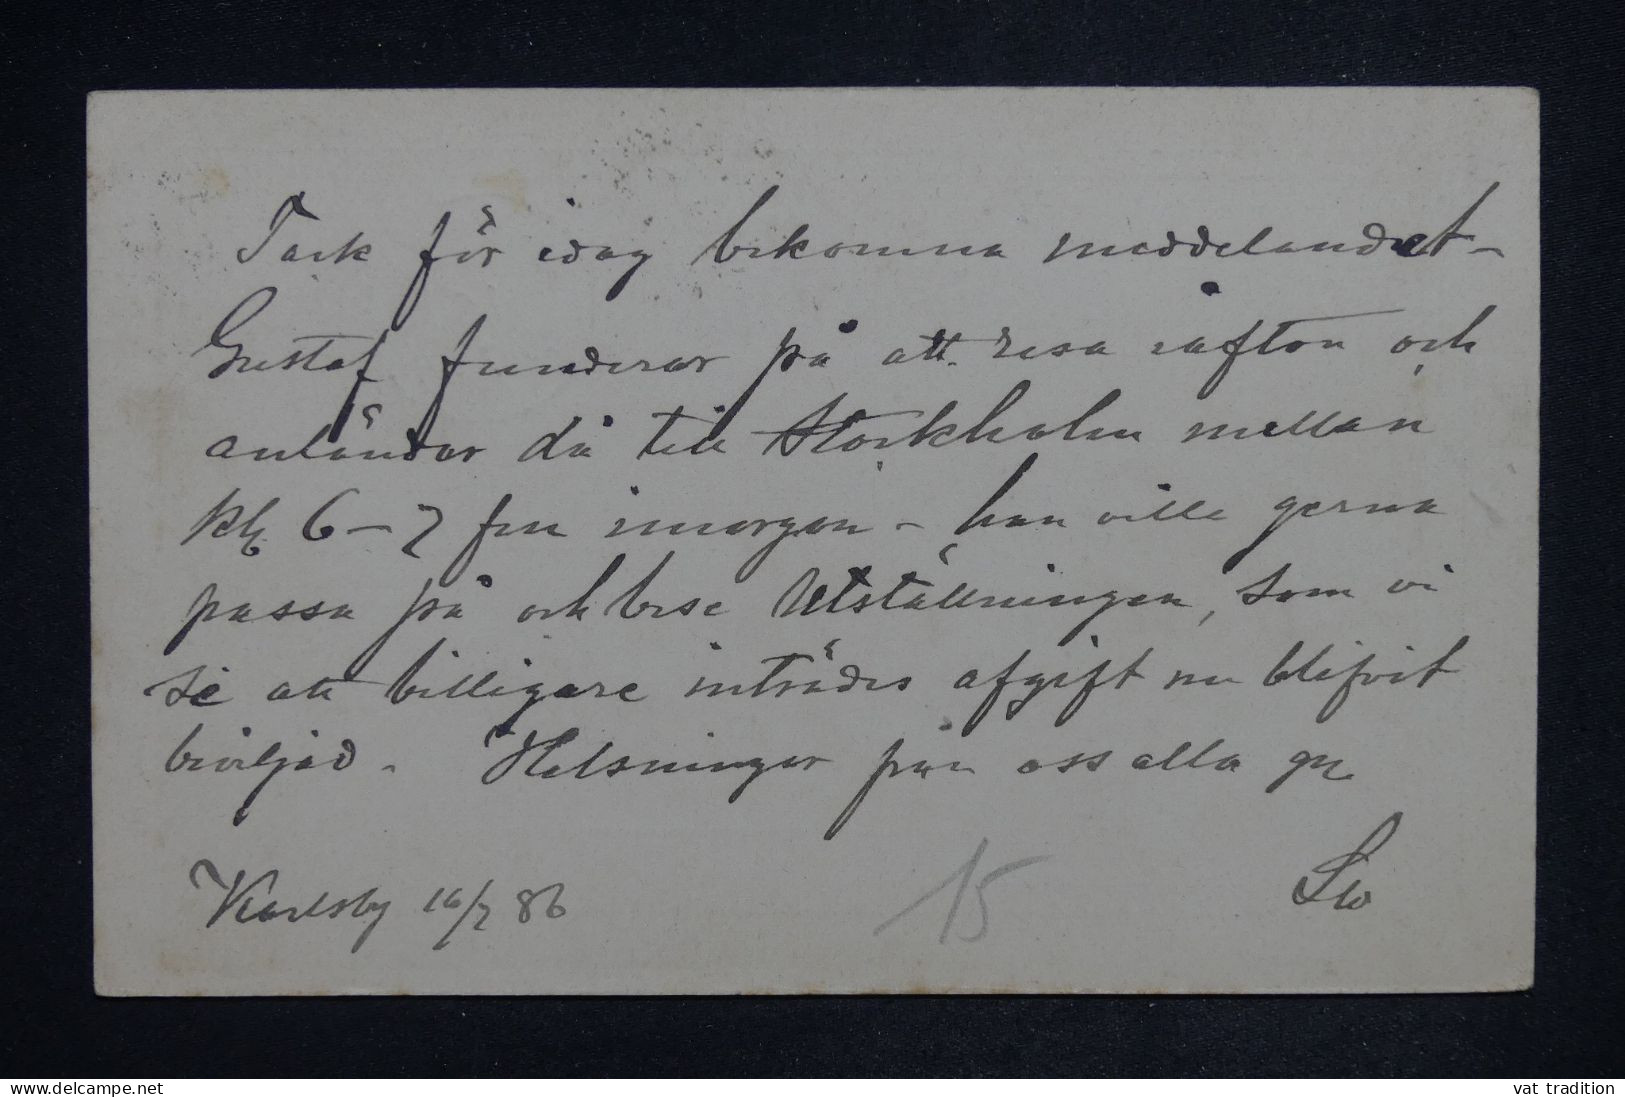 Tack för idag bekomna meddelandet –
Gustaf funderar på att resa iafton och
anländar då till Stockholm mellan
kl. 6–7 fm imorgon – han ville gerna
passa på och bese Utställningen, som vi
se att billigare inträdes afgift nu blifvit
beviljad. Helsningar från oss alla gm
Karlsby 16/7 86
15
delcampe.net
vat_tradition